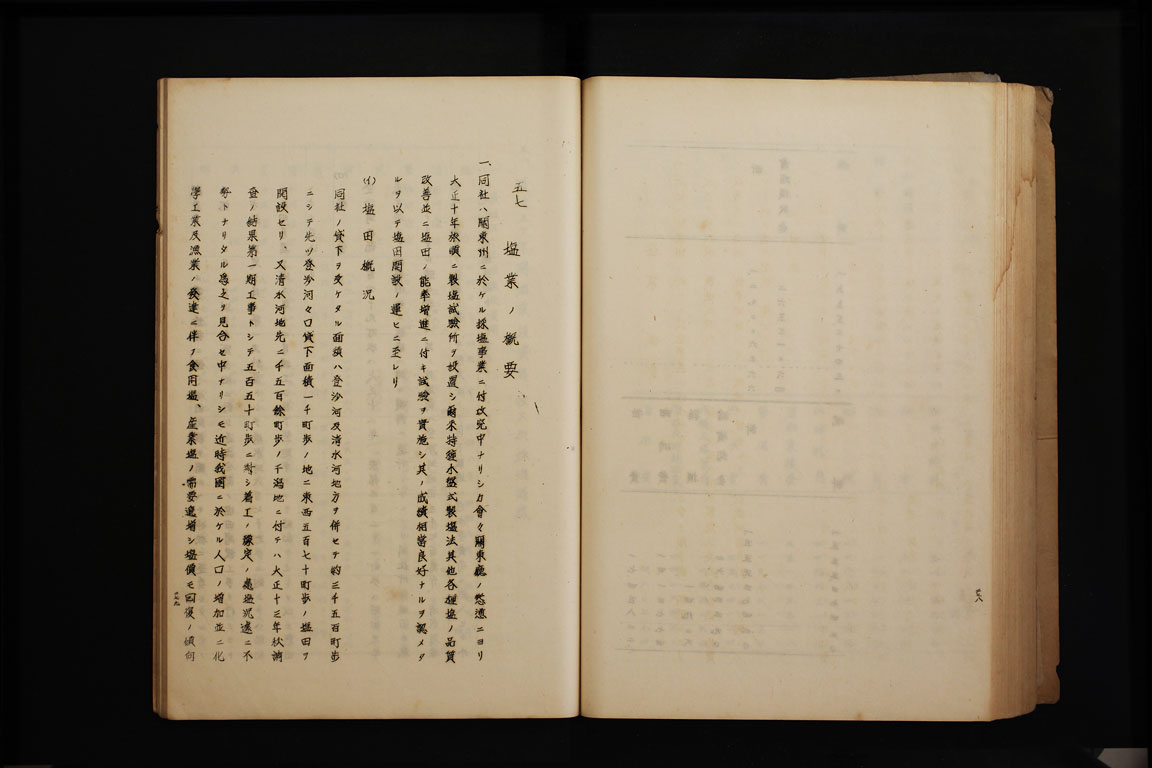 五七　塩業ノ概要
一、同社ハ関東州ニ於ケル採塩事業ニ付攻究中ナリシカ會々関東廳ノ慫慂ニヨリ
大正十年旅順ニ製塩試験所ヲ設置シ爾来特種小盤式製塩法其他各種塩ノ品質
改善並ニ塩田ノ能率増進ニ付キ試験ヲ實施シ其ノ成績相當良好ナルヲ認メタ
ルヲ以テ塩田開設ノ運ヒニ至レリ
(イ) 塩田概況
同社ノ貸下ヲ受ケタル面積ハ登沙河及清水河地方ヲ併セテ約三千五百町歩
ニシテ先ツ登沙河々口貸下面積一千町歩ノ地ニ東西五百七十町歩ノ塩田ヲ
開設セリ、又清水河地先ニ千五百餘町歩ノ干潟地ニ付テハ大正十三年秋調
査ノ結果第一期工事トシテ五百五十町歩ニ対シ着工ノ豫定ノ處塩況遂ニ不
振トナリタル為之ヲ見合セ中ナリシモ近時我國ニ於ケル人口ノ増加並ニ化
學工業及漁業ノ発達ニ伴ヲ食用塩、産業塩ノ需要逓増シ塩價モ回復ノ傾向